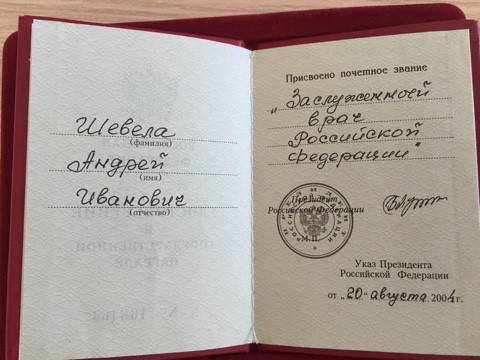 Шевела
(фамилия)
Андрей
(имя)
Иванович
(отчество)
Присвоено почетное звание
„Заслуженный
врач
Российской
федерации“
Президент
Российской Федерации
М.П.
Указ Президента
Российской Федерации
от „20“ августа 2004 г.